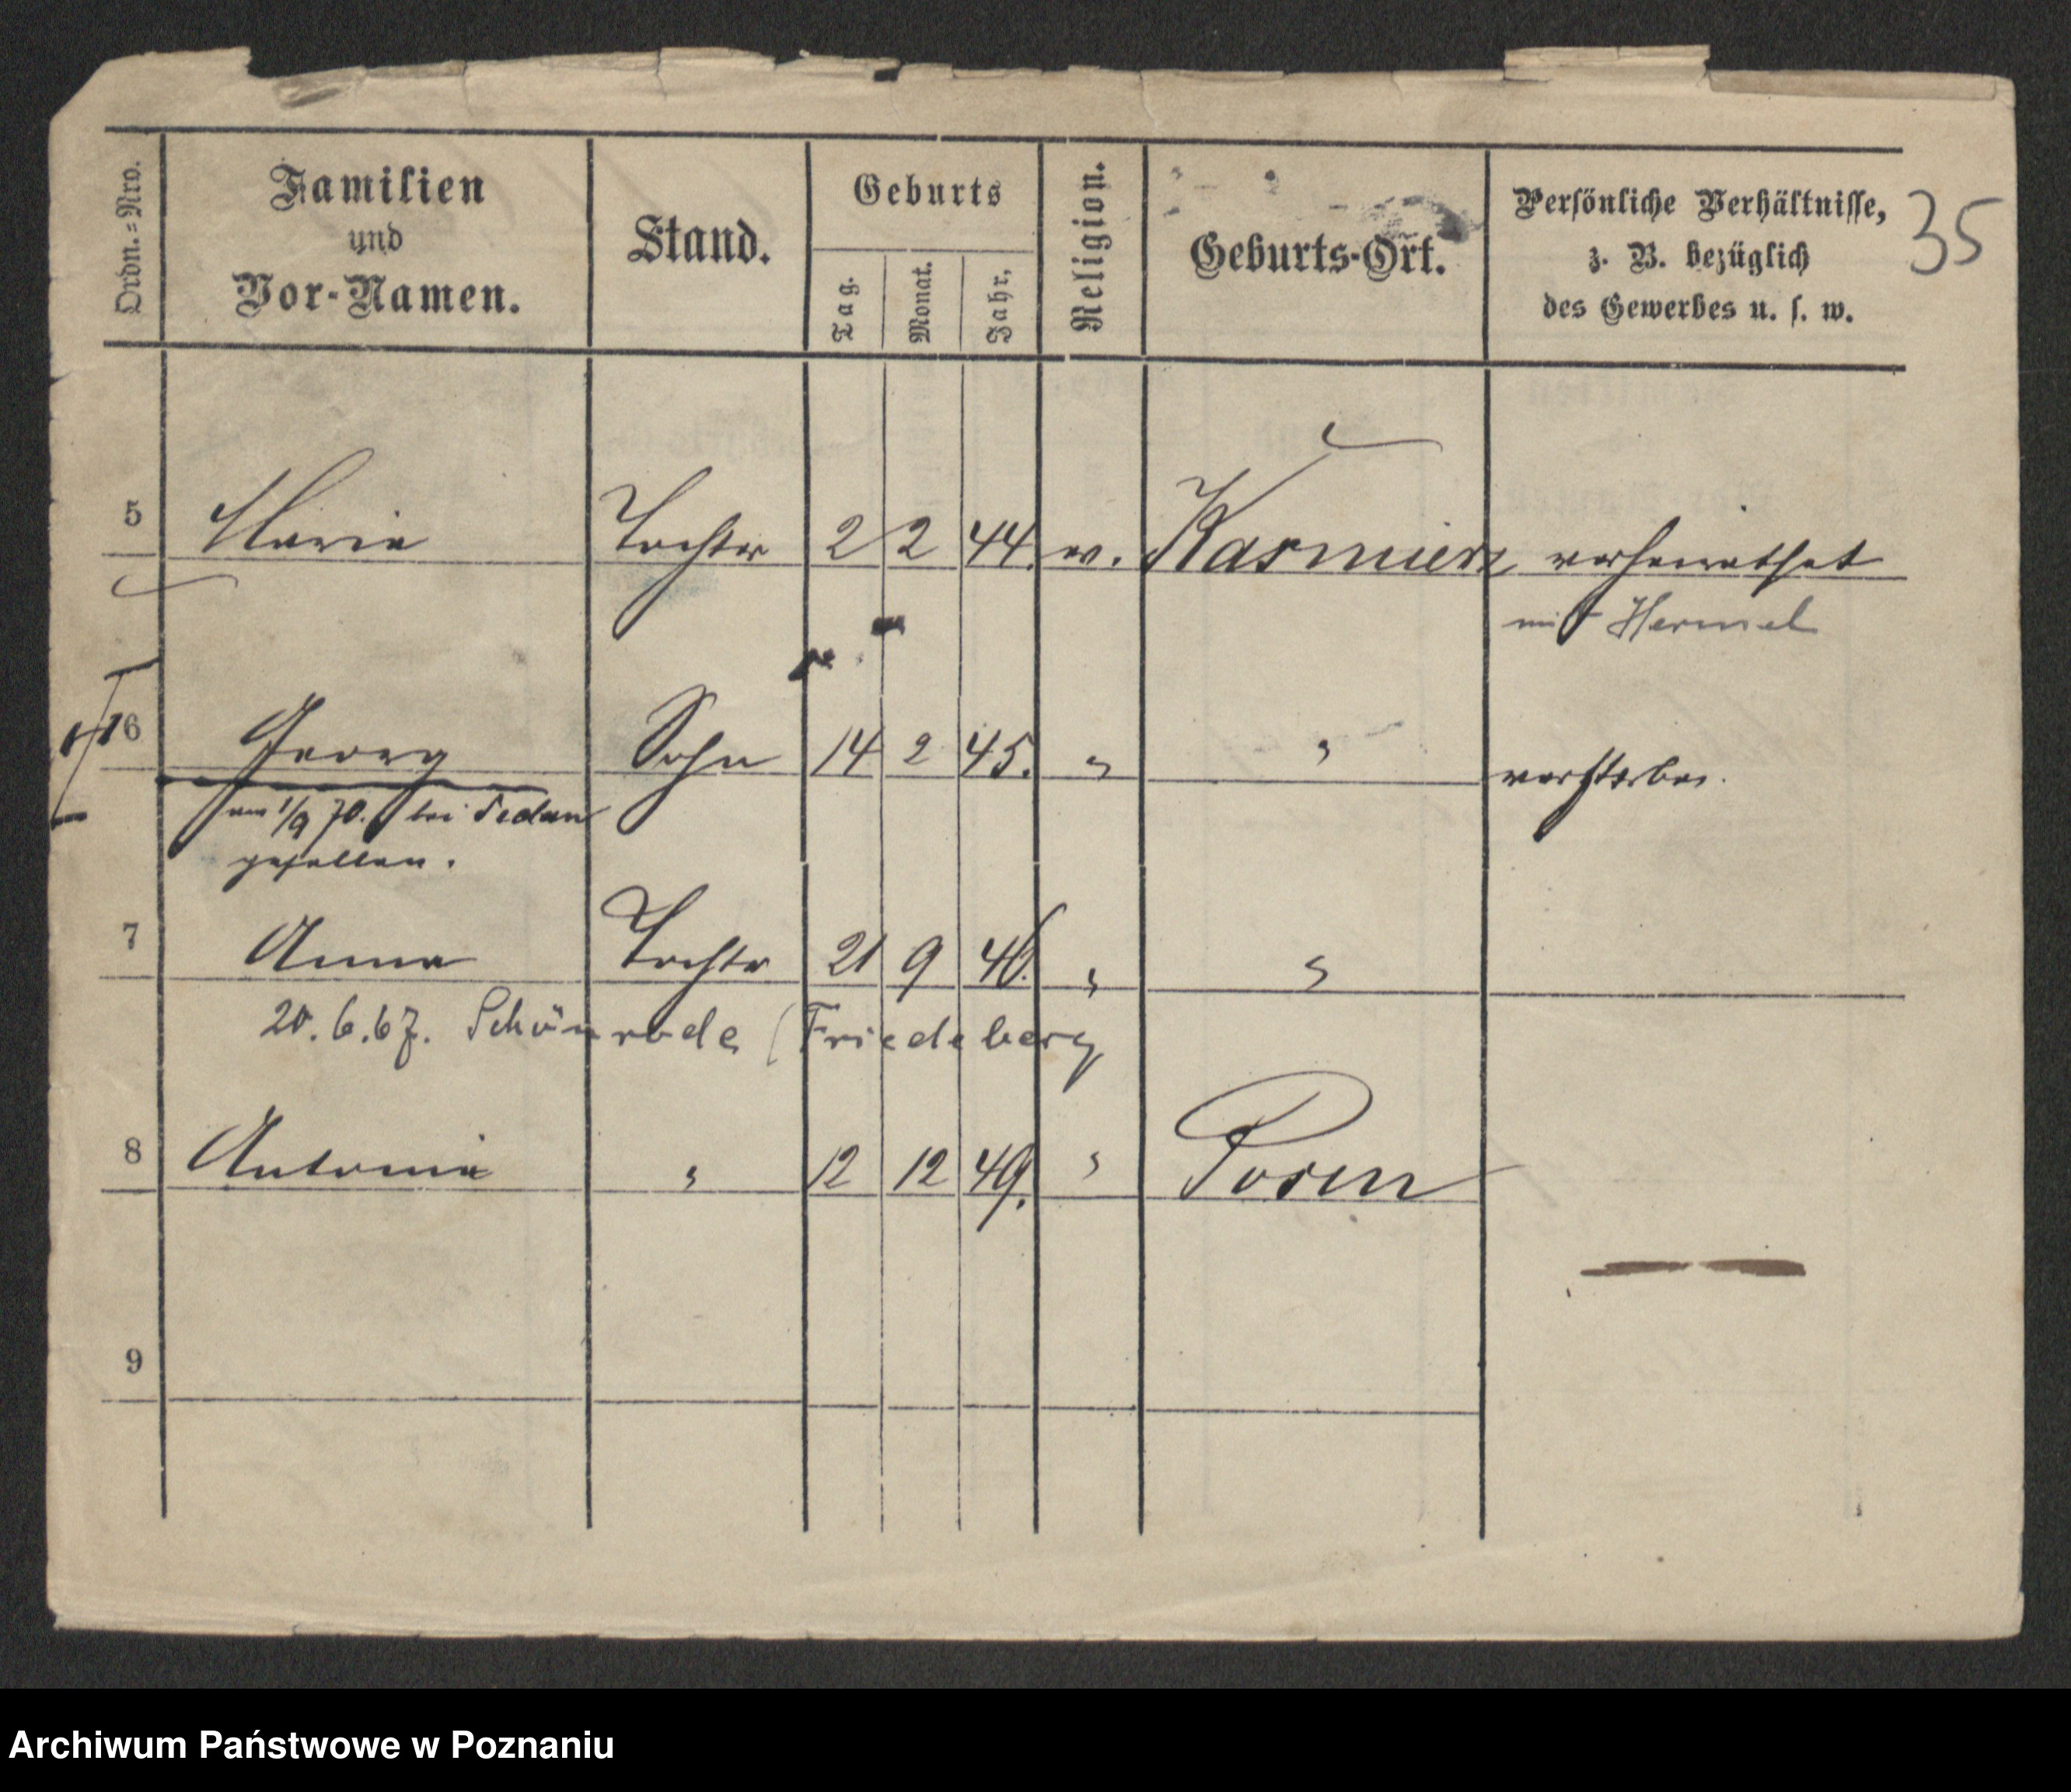 Ordn.=Nro. Familien und Vor-Namen. Stand. Geburts Tag. Monat. Jahr. Religion. Geburts-Ort. Persönliche Verhältnisse, z. B. bezüglich des Gewerbes u. s. w. 35
5 Maria Tochter 2 2 44. Kasmierz verheirathet
mit Hermel
6 Georg Sohn 14 2 45. " " verstorben.
am 1/9 70. bei Sedan
gefallen.
7 Anna Tochter 21 9 46. " "
20.6.67. Schönrade (Friedeberg
8 Antonie " 12 12 49. " Posen
9
Archiwum Państwowe w Poznaniu